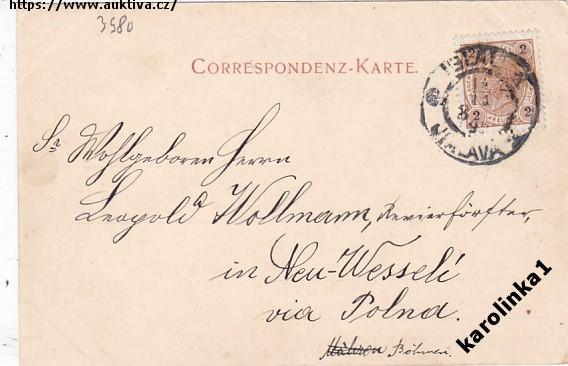 https://www.auktiva.cz/
3980
CORRESPONDENZ-KARTE.
2
2
Sr Wohlgeboren Herrn
Leopold Wollmann, Revierförster,
in Neu-Wesselí
via Polna.
Mähren Böhmen.
karolinka1